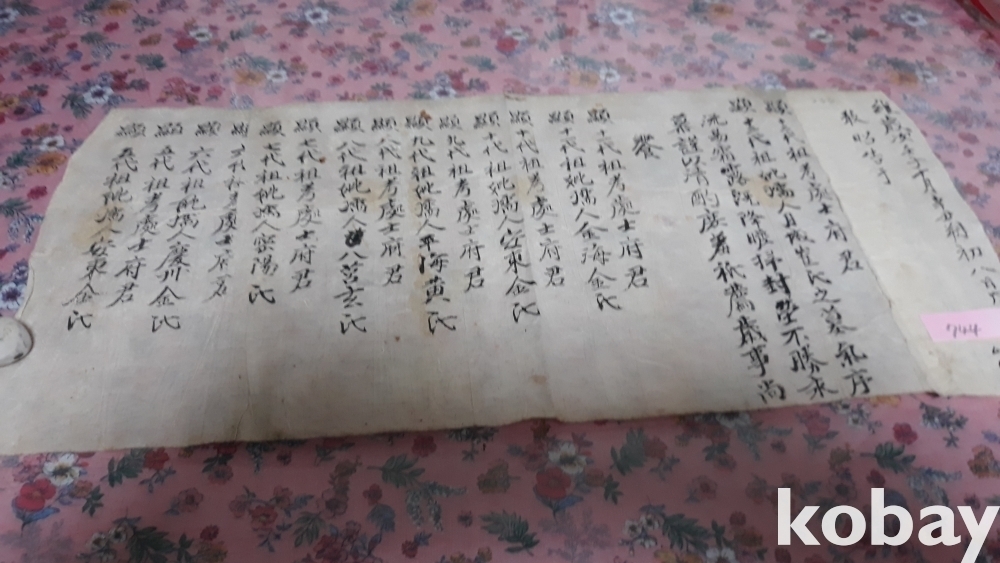 維歲次 十月 朔初八日
敢昭告于
顯十 代祖考處士府君
顯十 代祖妣孺人 城 氏之墓氣序
流易霜露旣降瞻掃封塋不勝永
慕謹以清酌庶羞祗薦歲事尚
饗
顯十一代祖考處士府君
顯十一代祖妣孺人金海金氏
顯十代祖考處士府君
顯十代祖妣孺人安東金氏
顯九代祖考處士府君
顯九代祖妣孺人平海黃氏
顯八代祖考處士府君
顯八代祖妣孺人 八莒玄氏
顯七代祖考處士府君
顯七代祖妣孺人密陽 氏
顯六代祖考處士府君
顯六代祖妣孺人慶州金氏
顯五代祖考處士府君
顯五代祖妣孺人安東金氏
744
kobay